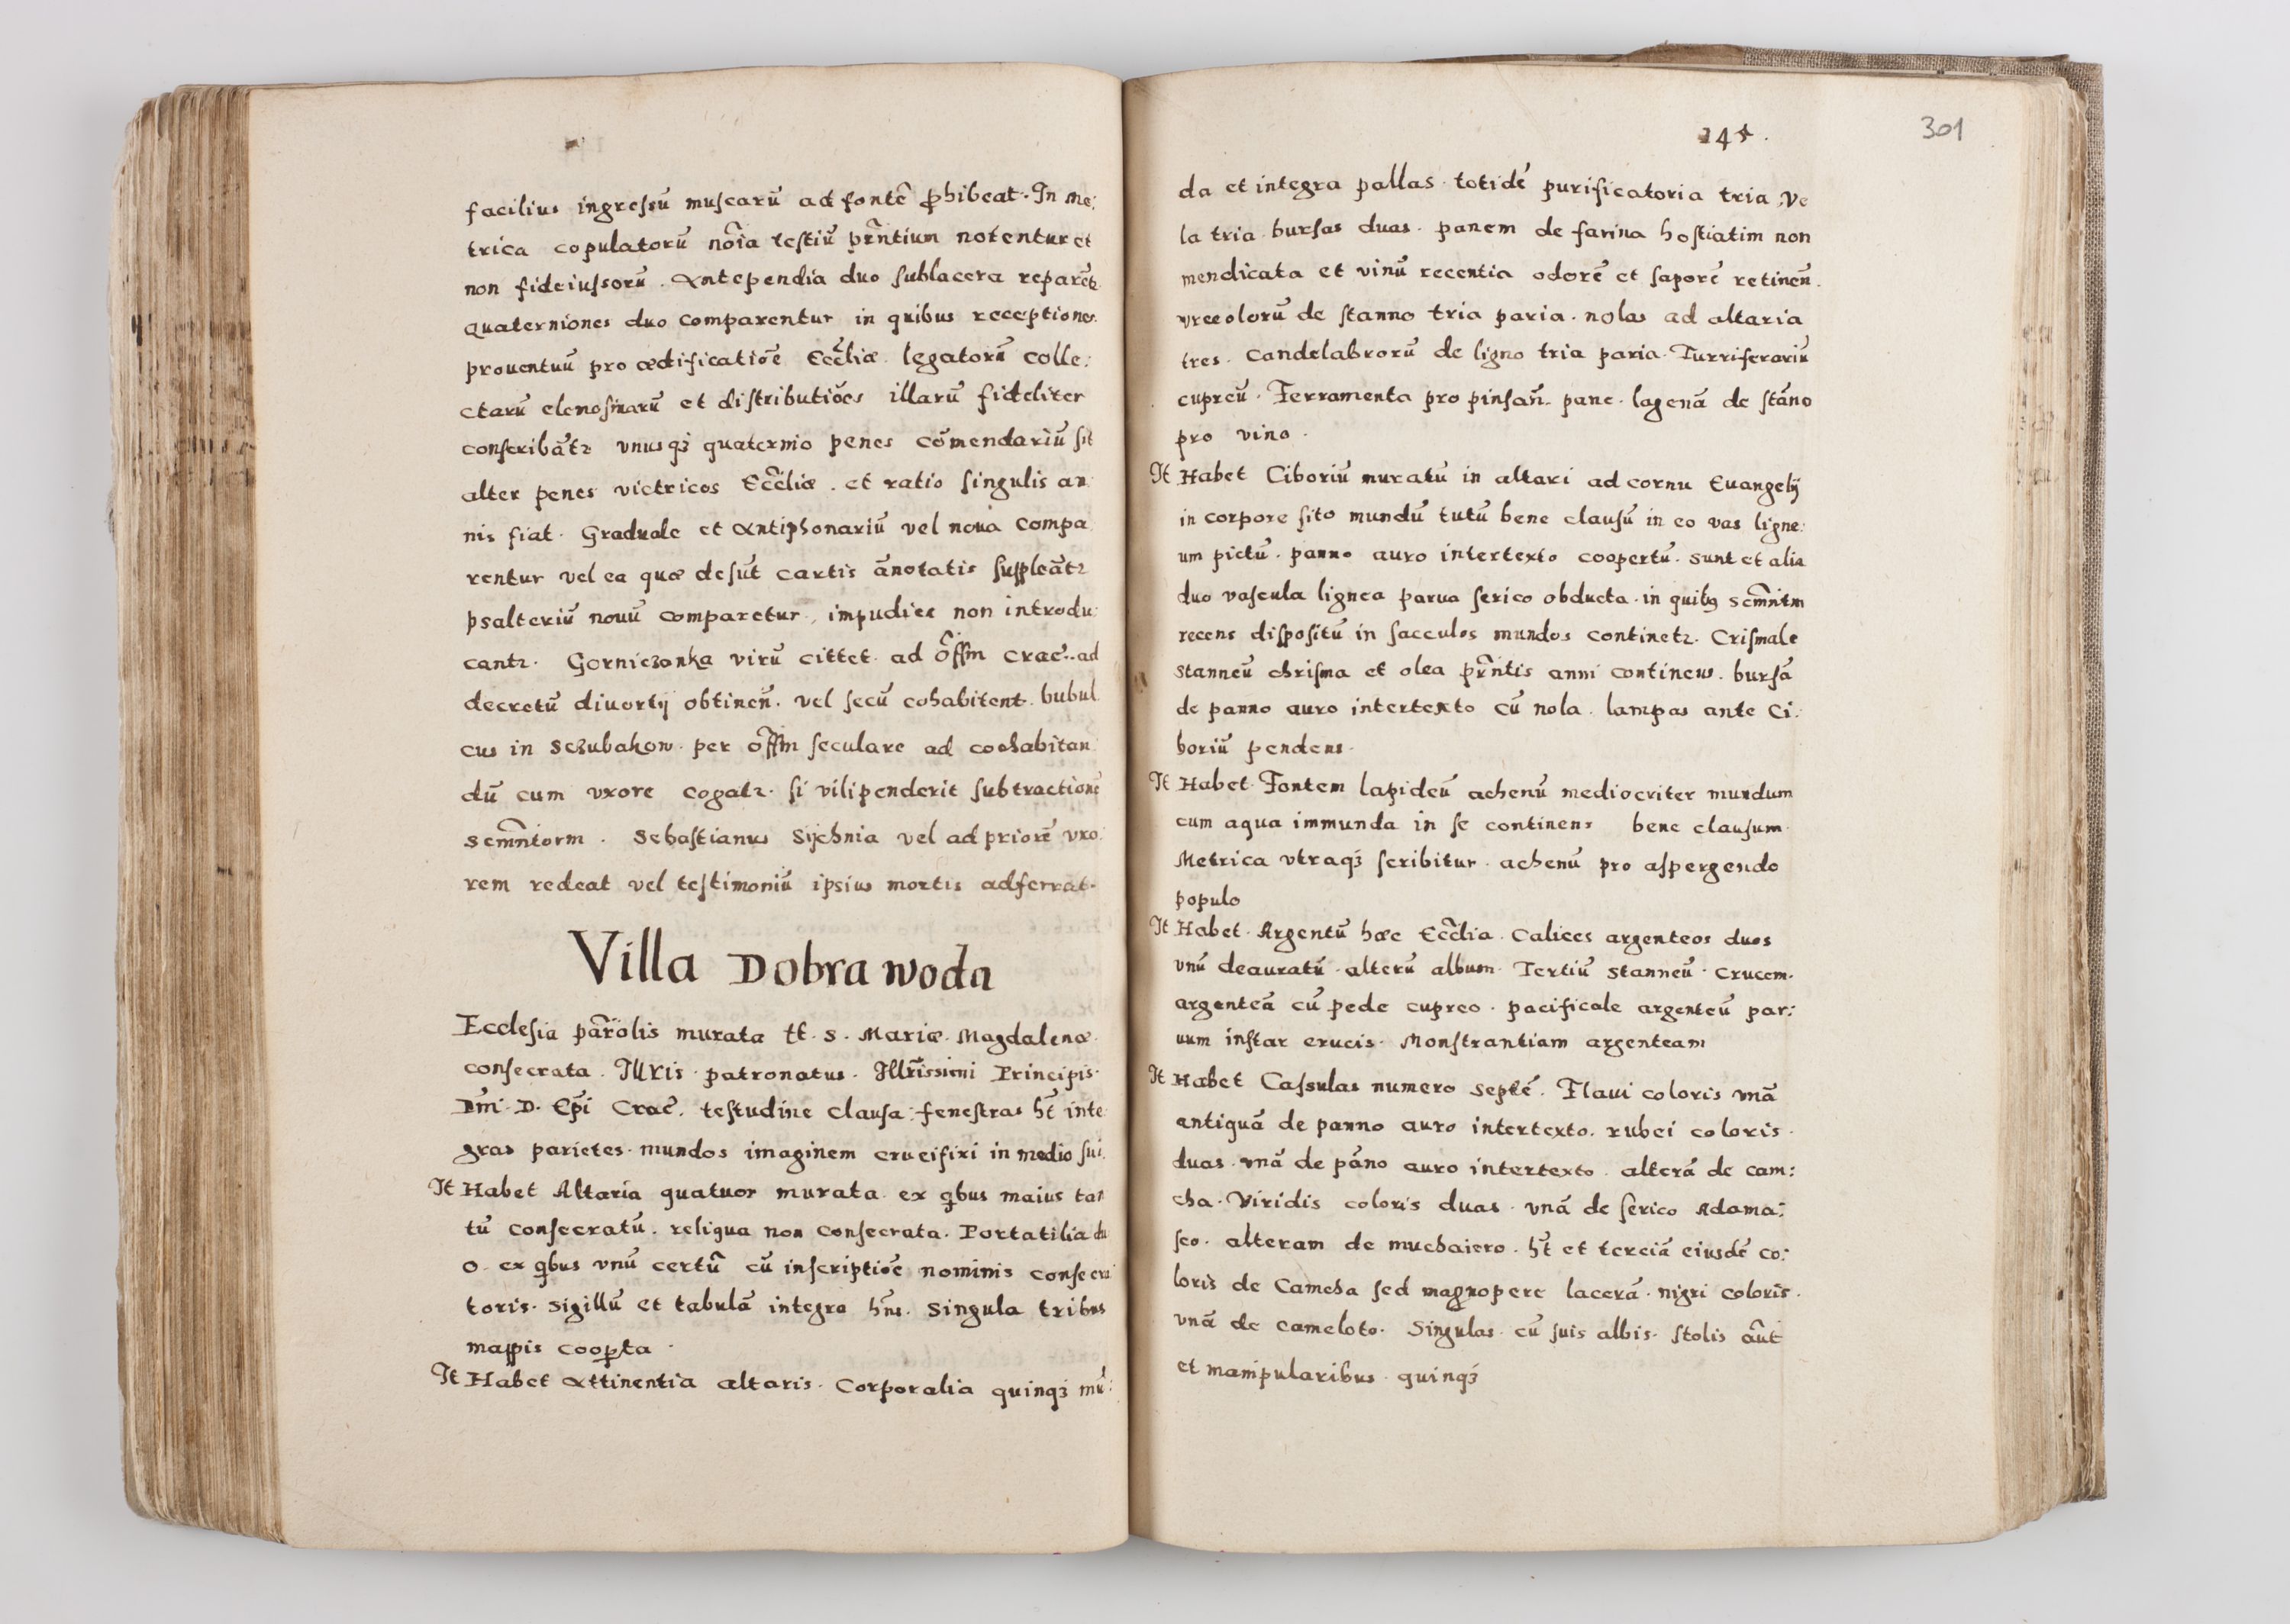 facilius ingressũ muscarũ ad fontẽ ꝓhibeat. In me:
trica copulatorũ nõia testiũ pr̃ntium notentur et
non fideiussorũ. Antependia duo sublacera reparẽtꝛ
Quaterniones duo comparentur in quibus receptiones
prouentuũ pro ædificatiõe Eccl̃iæ. legatorũ colle:
ctarũ elemosinarũ et distributiões illarũ fideliter
conscribãtꝛ vnusqꝫ quaternio penes cõmendariũ sit
alter penes victricos Eccl̃iæ. et ratio singulis an
nis fiat. Graduale et Antiphonariũ vel noua compa
rentur vel ea quæ desũt cartis ãnotatis suppleãtꝛ
psalteriũ nouũ comparetur, impudicæ non introdu
cantꝛ. Gorniczonka virũ cittet. ad õffm crac̃. ad
decretũ diuortij obtineñ. vel secũ cohabitent. bubul
cus in Sczubakow. per õffm seculare ad coohabitan
dũ cum vxore cogatꝛ. si vilipenderit subtractionẽ
Scm̃ntorm. Sebastianus Sijchnia vel ad priorẽ vxo
rem redeat vel testimoniũ ipsius mortis adferrat.
Villa Dobra woda
Ecclesia par̃olis murata tt. S. Mariæ. Magdalenæ.
consecrata. Iuris. patronatus. Illr̃issimi Principis.
Dm̃i. D. Ep̃i Crac̃. testudine clausa. fenestras ht̃ inte
gras parietes. mundos imaginem crucifixi in medio sui.
It Habet Altaria quatuor murata. ex qbus maius tan
tũ consecratũ. reliqua non consecrata. Portatilia du
o. ex qbus vnũ certũ cũ inscriptiõe nominis consecra
toris. sigillũ et tabulã integrã hñs. Singula tribus
mappis cooꝑta.
It Habet Attinentia altaris. Corporalia quinqꝫ mũ:
245.
301
da et integra pallas. totidẽ purificatoria tria, Ve
la tria. bursas duas. panem de farina hostiatim non
mendicata et vinũ recentia odorẽ et saporẽ retineñ.
vrceolorũ de stanno tria paria. nolas ad altaria
tres. candelabrorũ de ligno tria paria. Turriferariũ
cupreũ. Ferramenta pro pinsañ. pane. lagenã de stãno
pro vino.
It Habet Ciboriũ muratũ in altari ad cornu Euangelij
in corpore sito mundũ tutũ bene clausũ in eo vas ligne:
um pictũ. panno auro intertexto coopertũ. sunt et alia
duo vascula lignea parua serico obducta. in quibꝯ Scm̃ntm
recens dispositũ in sacculos mundos continetꝛ. Crismale
stanneũ chrisma et olea pr̃ntis anni continens. bursã
de panno auro intertexto cũ nola. lampas ante Ci:
boriũ pendens.
It Habet. Fontem lapideũ achenũ mediocriter mundum
cum aqua immunda in se continens bene clausum.
Metrica vtraqꝫ scribitur. achenũ pro aspergendo
populo
It Habet. Argentũ hæc Eccl̃ia. Calices argenteos duos
vnũ deauratũ. alterũ album. Tertiũ stanneũ. crucem.
argenteã cũ pede cupreo. pacificale argenteũ par:
uum instar crucis. Monstrantiam argenteam
It Habet Cassulas numero septẽ. Flaui coloris vnã
antiquã de panno auro intertexto. rubei coloris.
duas. vnã de pãno auro intertexto. alterã de cam:
cha. Viridis coloris duas. vnã de serico Adama:
sco. alteram de muchaiero. ht̃ et terciã eiusdẽ co:
loris de Camcha sed magnopere lacerã. nigri coloris.
vnã de cameloto. Singulas. cũ suis albis. stolis aũt
et manipularibus. quinqꝫ